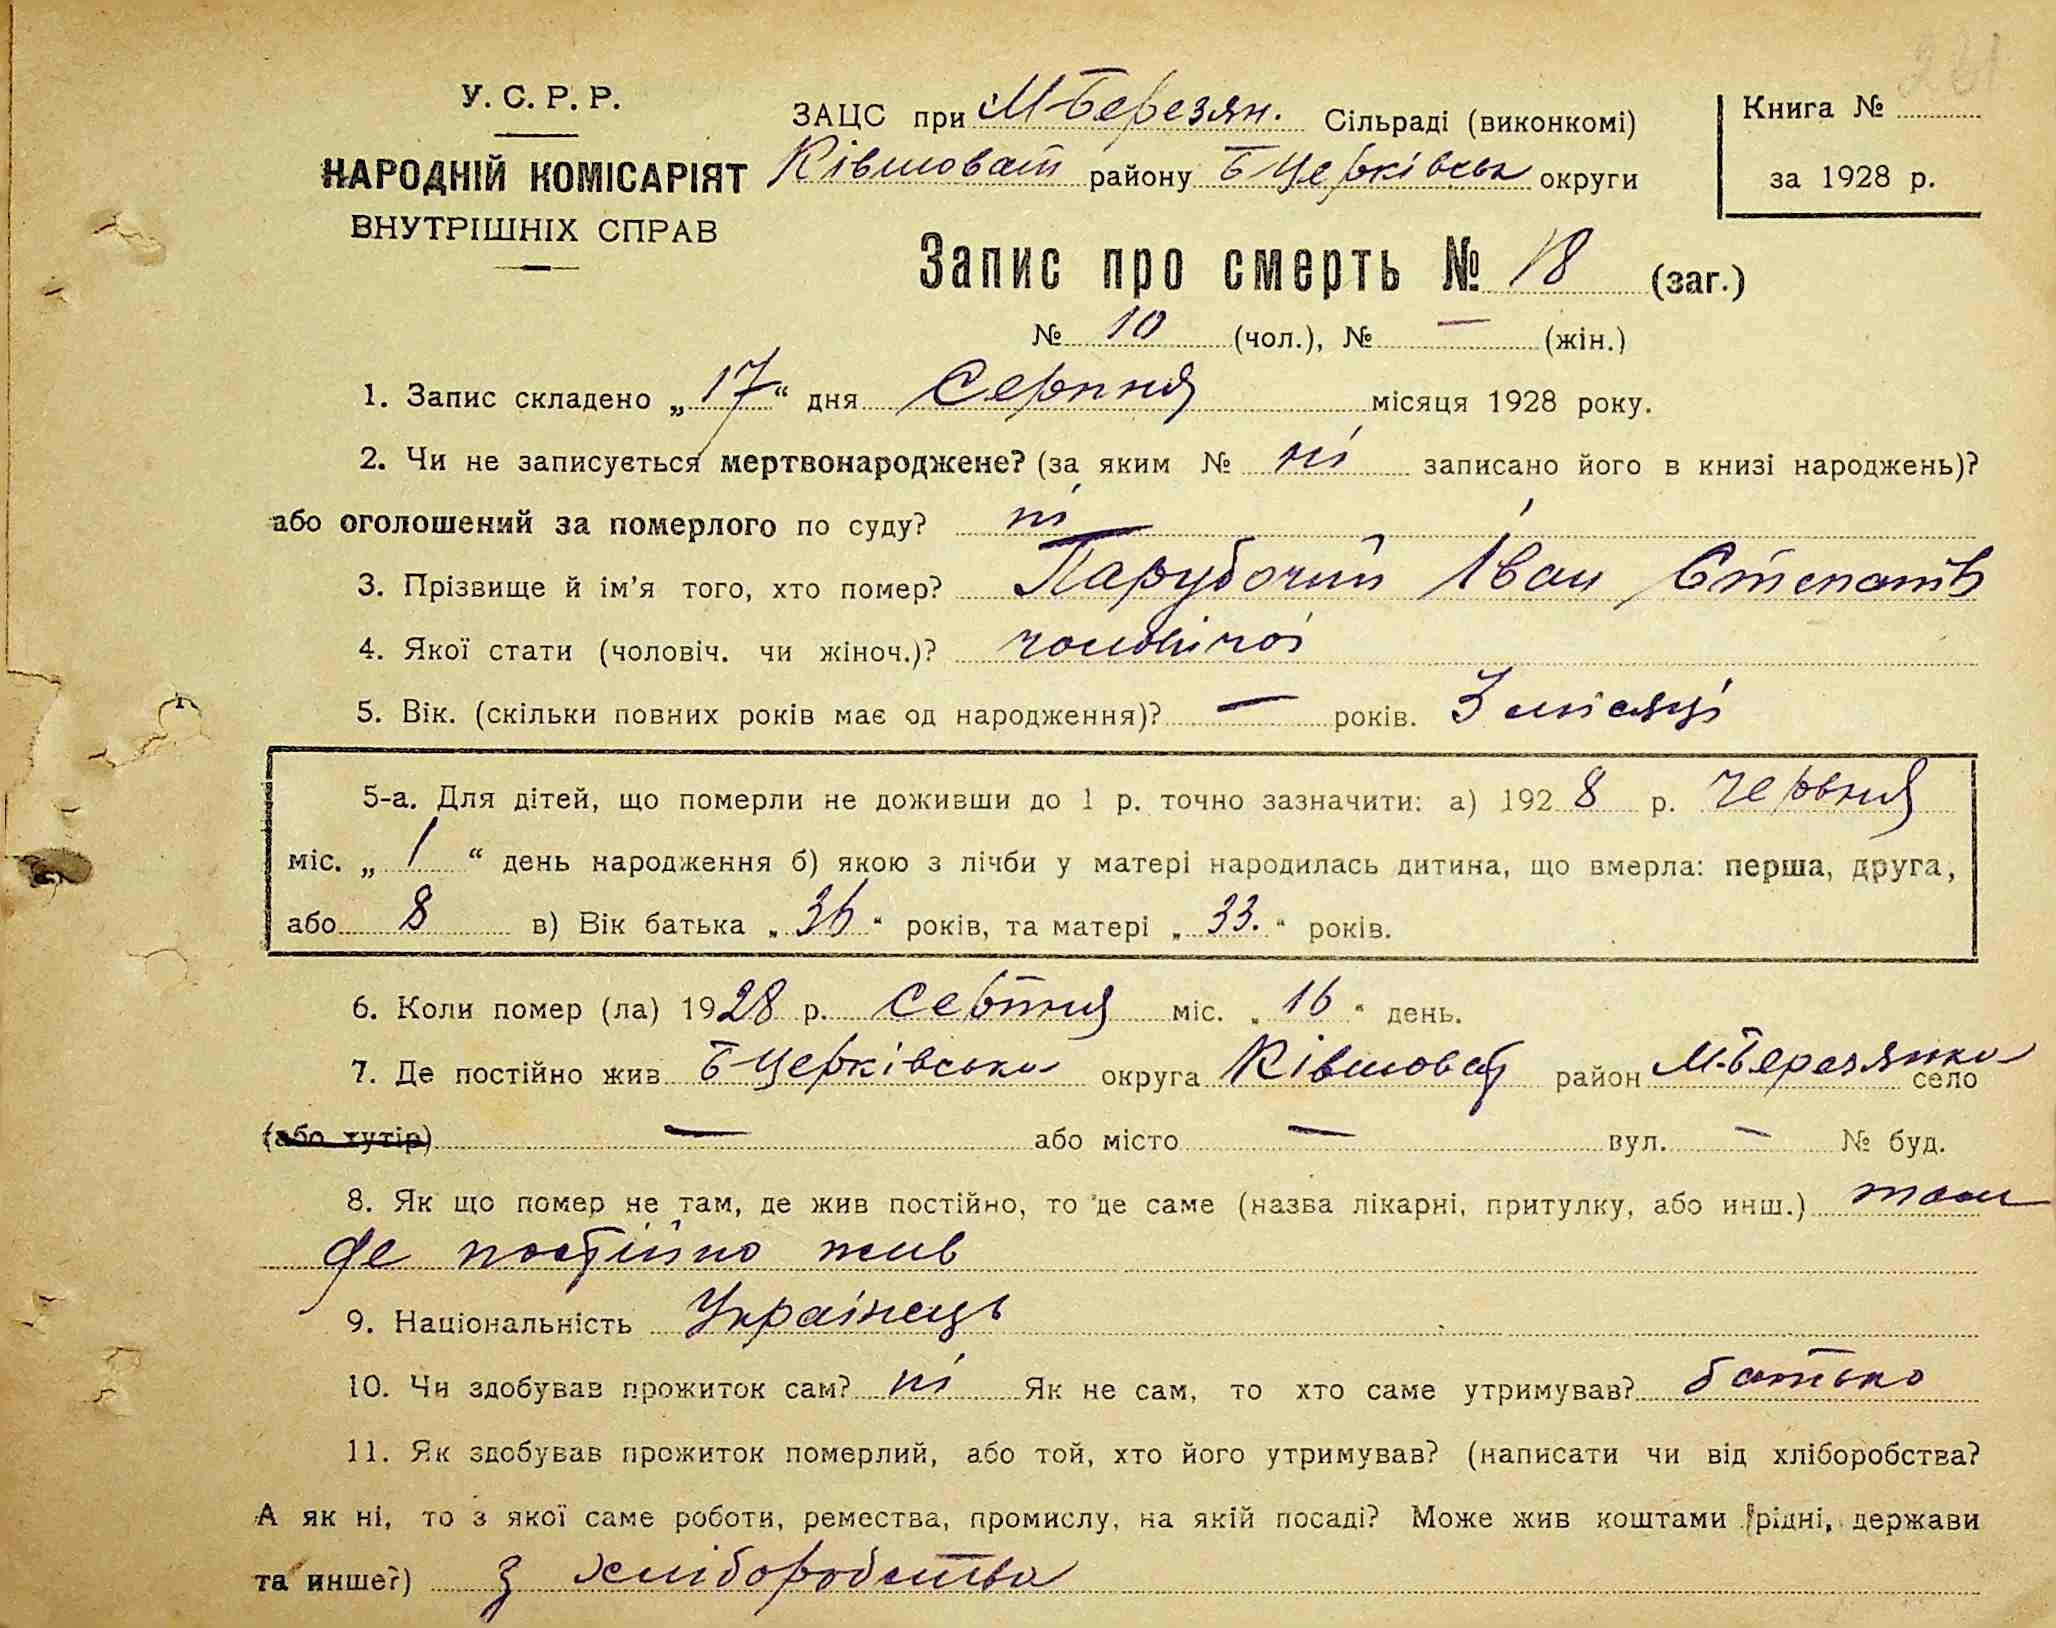 261
У. С. Р. Р.
НАРОДНІЙ КОМІСАРІЯТ
ВНУТРІШНІХ СПРАВ
ЗАЦС при М-Березян. Сільраді (виконкомі)
Ківшоват району Б Церківськ округи
Книга №
за 1928 р.
Запис про смерть № 18 (заг.)
№ 10 (чол.), № — (жін.)
1. Запис складено „17“ дня Серпня місяця 1928 року.
2. Чи не записується мертвонароджене? (за яким № ні записано його в книзі народжень)?
або оголошений за померлого по суду? ні
3. Прізвище й ім’я того, хто помер? Парубочий Іван Степанів
4. Якої стати (чоловіч. чи жіноч.)? чоловічої
5. Вік. (скільки повних років має од народження)? — років. 3 місяці
5-а. Для дітей, що померли не доживши до 1 р. точно зазначити: а) 1928 р. червня
міс. „1“ день народження б) якою з лічби у матері народилась дитина, що вмерла: перша, друга,
або 8 в) Вік батька „36“ років, та матері „33.“ років.
6. Коли помер (ла) 1928 р. серпня міс. „16“ день.
7. Де постійно жив Б Церківська округа Ківшоват район М-Березянка село
(або хутір) — або місто — вул. — № буд.
8. Як що помер не там, де жив постійно, то де саме (назва лікарні, притулку, або инш.) там
де постійно жив
9. Національність Українець
10. Чи здобував прожиток сам? ні Як не сам, то хто саме утримував? батько
11. Як здобував прожиток померлий, або той, хто його утримував? (написати чи від хліборобства?
А як ні, то з якої саме роботи, ремества, промислу, на якій посаді? Може жив коштами рідні, держави
та инше?) з хліборобства